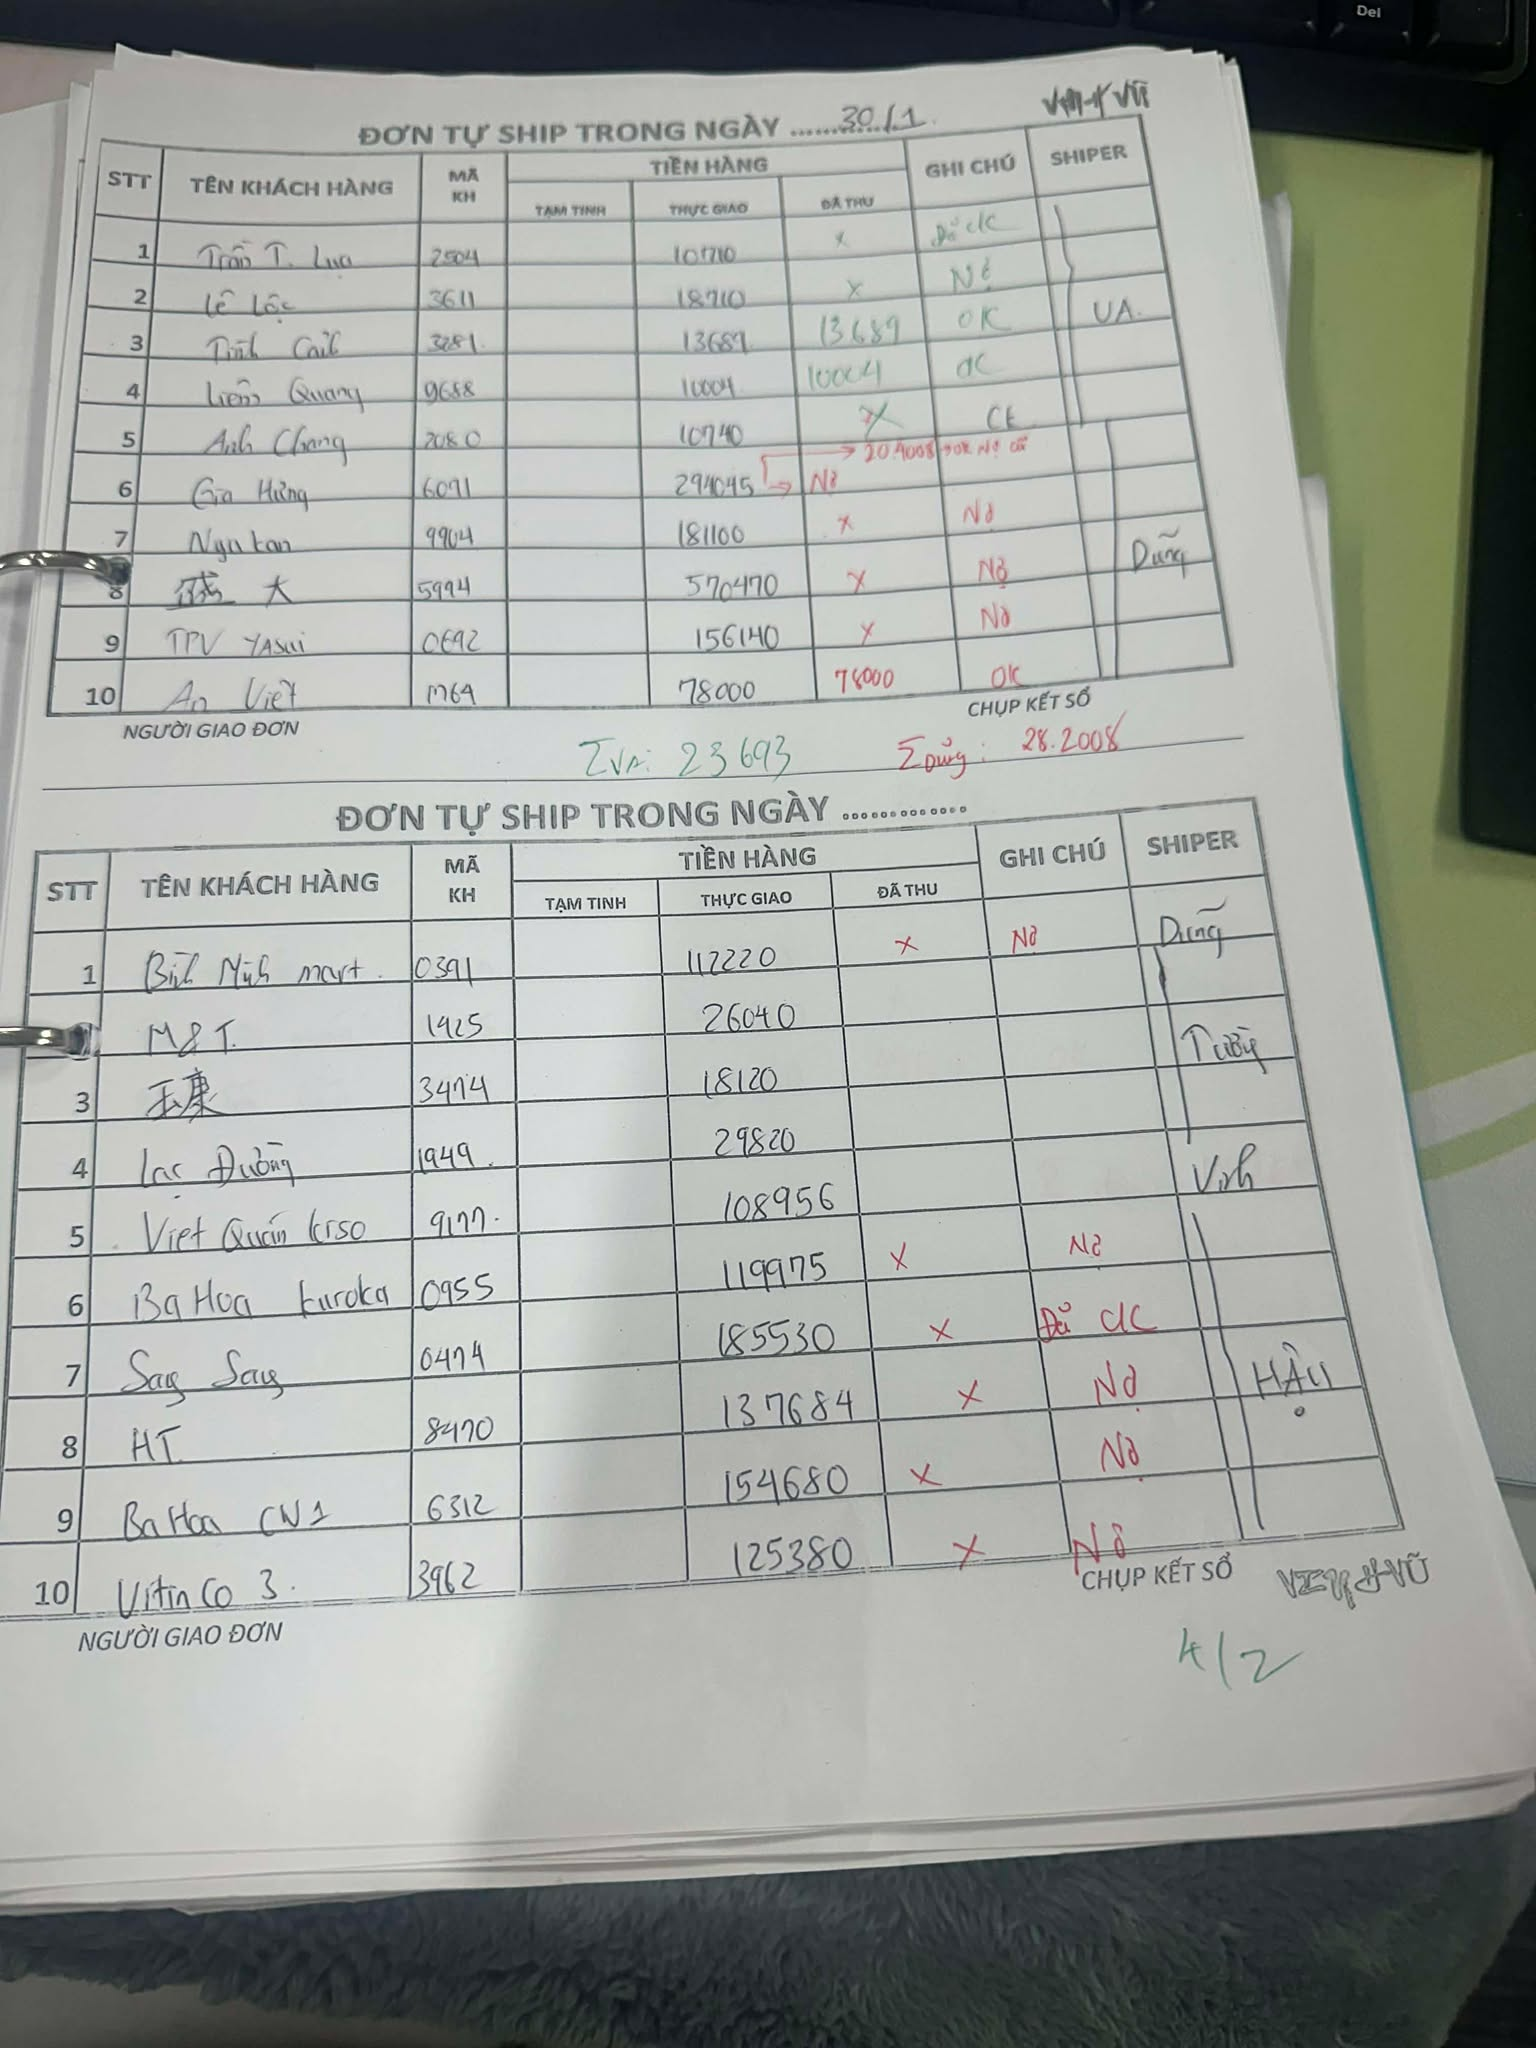 Del
ĐƠN TỰ SHIP TRONG NGÀY ............. 30/1. VŨ
STT TÊN KHÁCH HÀNG MÃ KH TIỀN HÀNG GHI CHÚ SHIPER
TẠM TINH THỰC GIAO ĐÃ THU
1 Trần T. Lụa 2504 10710 x Đã CK
2 Lê Lộc 3611 18710 x Nợ
3 3281 13689 13689 OK VA.
4 Liêm Quang 9688 10004 10004 CK
5 Anh Chang 2080 10740 x CK
→ 20.4008
6 Gia Hưng 6091 294045 → Nợ
7 Nga tan 9904 181100 x Nợ Dũng
8 大 5994 570470 x Nợ
9 TPV YASUI 0692 156140 x Nợ
10 An Việt 1764 78000 78000 OK
NGƯỜI GIAO ĐƠN CHỤP KẾT SỔ
ΣVA: 23693 ΣDũng: 28.2008
ĐƠN TỰ SHIP TRONG NGÀY .............
STT TÊN KHÁCH HÀNG MÃ KH TIỀN HÀNG GHI CHÚ SHIPER
TẠM TINH THỰC GIAO ĐÃ THU
1 Bình Minh mart. 0391 112220 x Nợ Dũng
M&T. 1425 26040
3 玉康 3474 18120 Tường
4 Lạc Đường 1949. 29820
5 Việt Quán kiso 9177. 108956 Vinh
6 Ba Hoa kuroka 0955 119975 x Nợ
7 Sag Sag 0474 185530 x Đã CK
8 HT. 8470 137684 x Nợ HẬU
9 Ba Hoa CN1 6312 154680 x Nợ
10 Vitin Co 3. 3962 125380 x Nợ
NGƯỜI GIAO ĐƠN CHỤP KẾT SỔ VŨ
4/2